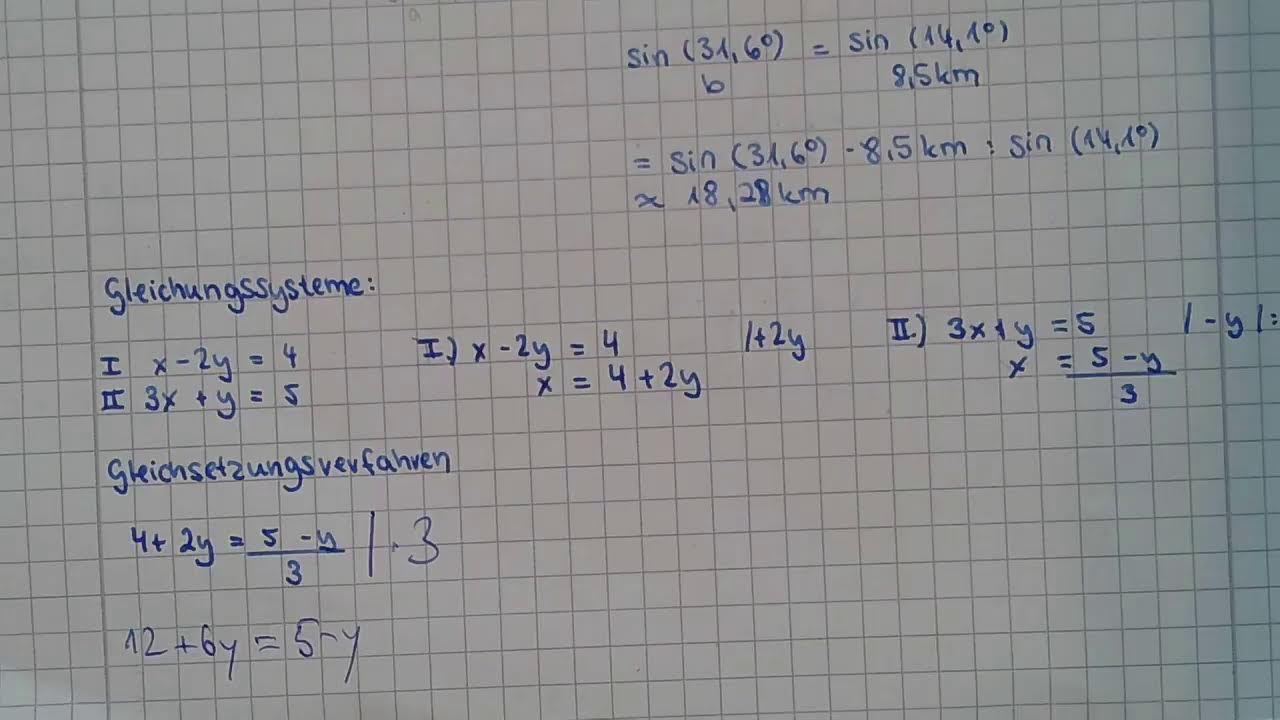 sin (31,6°) = sin (14,1°)
b 8,5km
= sin (31,6°) · 8,5km : sin (14,1°)
≈ 18,28km
Gleichungssysteme:
I x - 2y = 4
II 3x + y = 5
I.) x - 2y = 4 |+2y
x = 4 + 2y
II.) 3x + y = 5 |-y |:
x = 5 - y
3
Gleichsetzungsverfahren
4 + 2y = 5 - y | · 3
3
12 + 6y = 5 - y